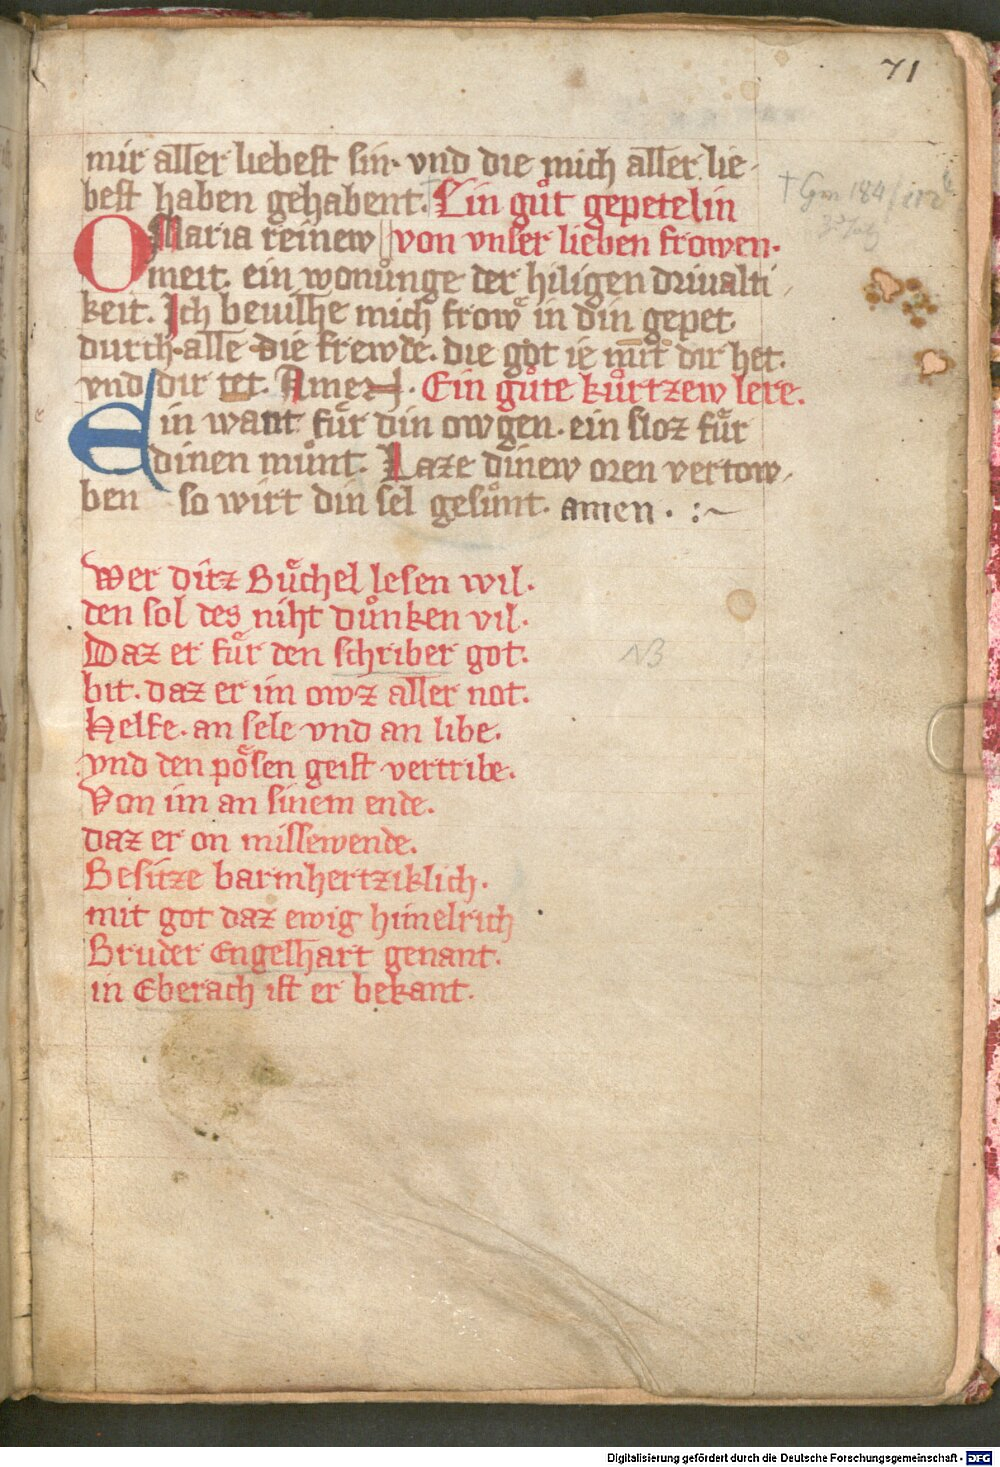 71
mir aller liebest sin· vnd die mich aller lie-
best haben gehabent.† Ein gůt gepetelin
O Maria reinew || von vnser lieben frowen·
meit. ein wonůnge der hiligen driualti
keit. Ich beuilhe mich frowͤ in din gepet
durch·alle die frewde. die got ie mit dir het.
vnd dir tet. Amen. Ein gůte kůrtzew lere.
Ein want fuͤr din owgen. ein sloz fuͤr
dinen můnt. Laze dinew oren vertow-
ben so wirt din sel gesůnt. amen . :~
† Gm 184/
Wer ditz Buͤchel lesen wil.
den sol des niht důnken vil.
Daz er fuͤr den schriber got.
NB
bit. daz er im owz aller not.
Helfe. an sele vnd an libe.
vnd den poͤsen geist vertribe.
Von im an sinem ende.
daz er on missewende.
Besitze barmhertziklich.
mit got daz ewig himelrich
Bruder Engelhart genant.
in Eberach ist er bekant.
Digitalisierung gefördert durch die Deutsche Forschungsgemeinschaft - DFG